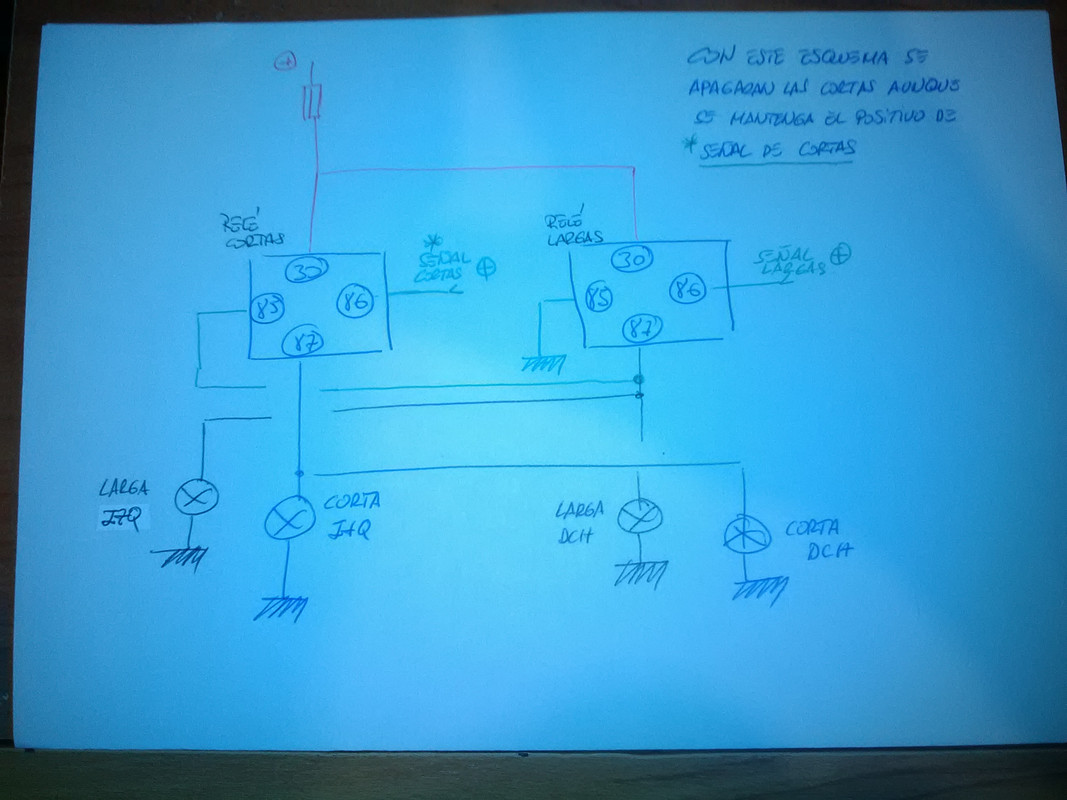 CON ESTE ESQUEMA SE
APAGARAN LAS CORTAS AUNQUE
SE MANTENGA EL POSITIVO DE
* SEÑAL DE CORTAS
+
RELÉ
CORTAS
30
85
86
87
*
SEÑAL
CORTAS +
RELÉ
LARGAS
30
85
86
87
SEÑAL
LARGAS +
LARGA
IZQ
CORTA
IZQ
LARGA
DCH
CORTA
DCH